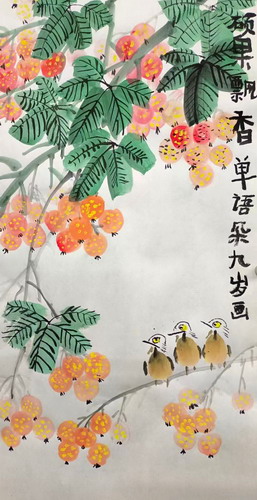 硕果飘香单语朵九岁画